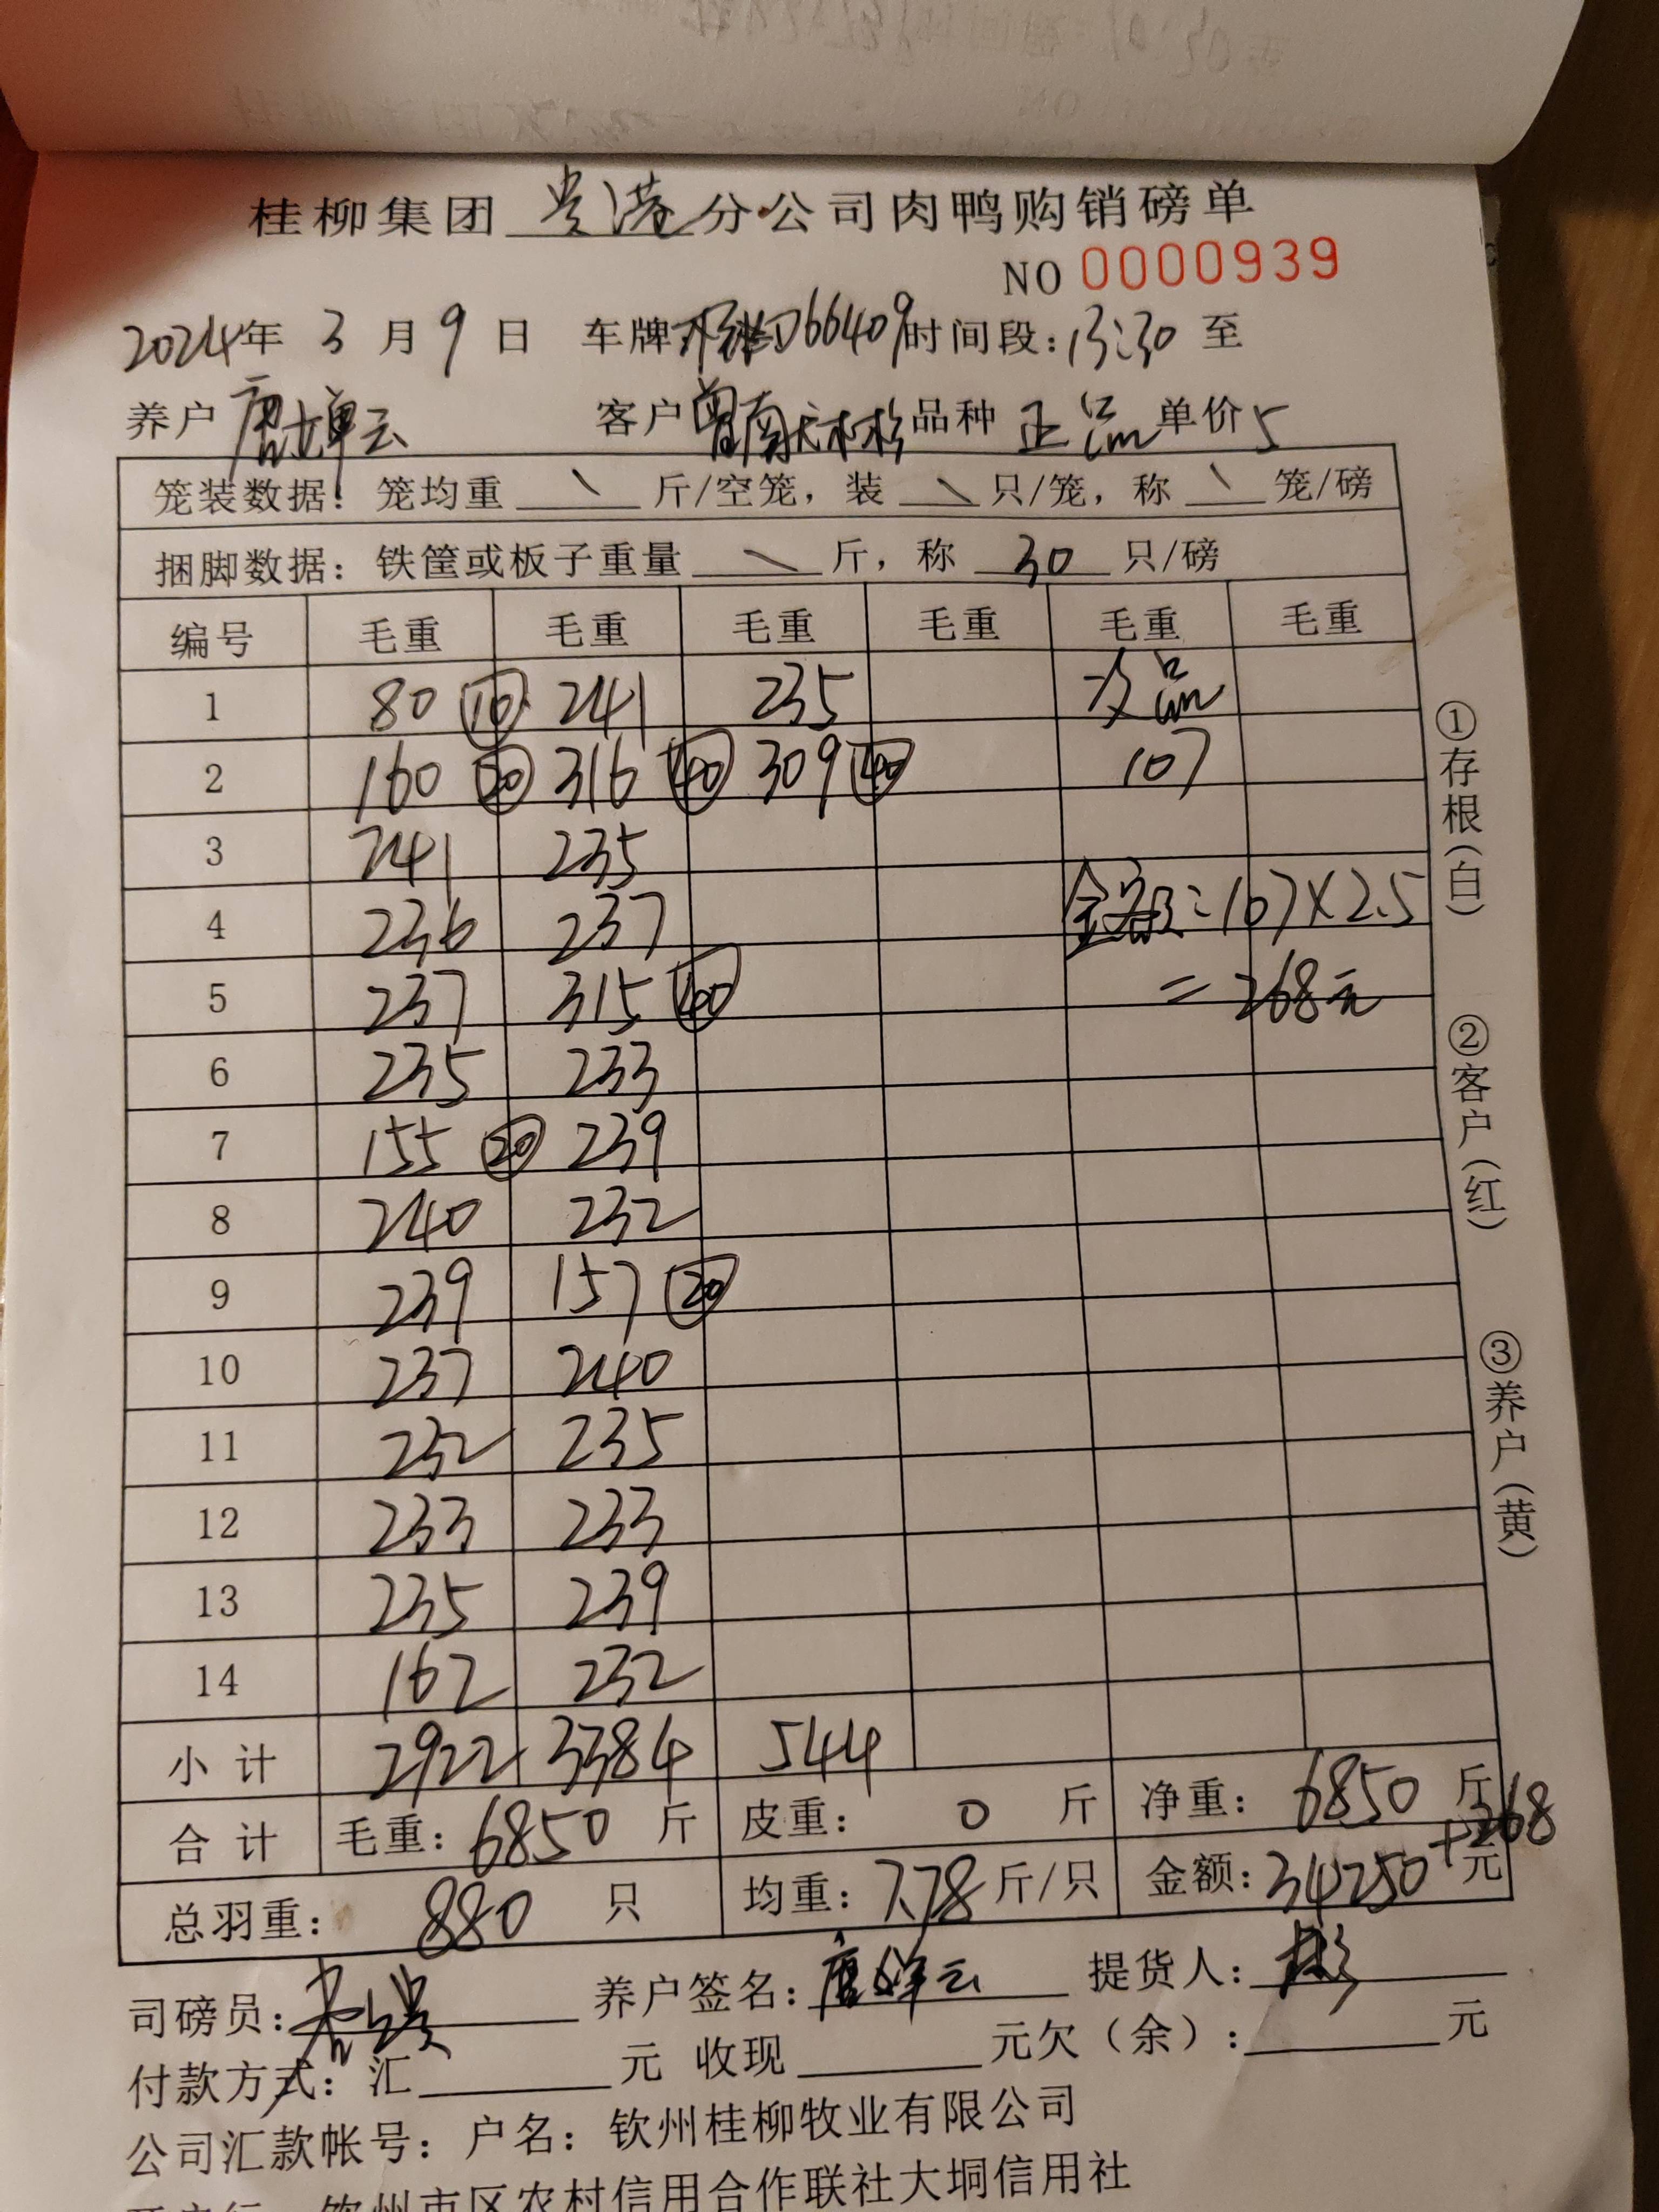 桂柳集团 贵港 分公司肉鸭购销磅单
NO 0000939
2024年 3 月 9 日 车牌 D66409 时间段:13:30 至
养户 唐婵云 客户 品种 正品 单价 5
笼装数据: 笼均重 \ 斤/空笼, 装 \ 只/笼, 称 \ 笼/磅
捆脚数据: 铁筐或板子重量 \ 斤, 称 30 只/磅
编号 毛重 毛重 毛重 毛重 毛重 毛重
1 80 ⑩ 241 235 次品
2 160 ⑳ 316 ㊵ 309 ㊵ 107
3 241 235
4 236 237 金额:107×2.5
5 237 315 ㊵ =268元
6 235 233
7 155 ⑳ 239
8 240 232
9 239 157 ⑳
10 237 240
11 232 235
12 233 233
13 235 239
14 162 232
小计 2922 3384 544
合计 毛重: 6850 斤 皮重: 0 斤 净重: 6850 斤
总羽重: 880 只 均重: 7.78 斤/只 金额: 34250+268 元
司磅员: 养户签名: 唐婵云 提货人: 彬
付款方式: 汇 元 收现 元欠(余): 元
公司汇款帐号: 户名: 钦州桂柳牧业有限公司
钦州市区农村信用合作联社大垌信用社
①存根(白)
②客户(红)
③养户(黄)